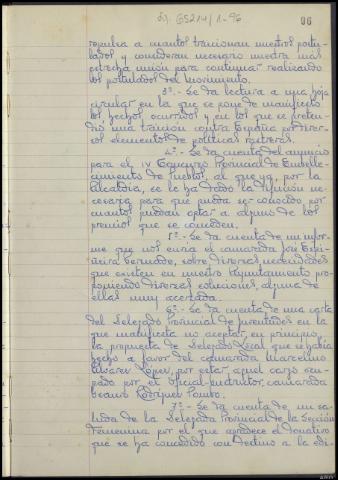 96
repulsa a cuantos traicionan nuestros postu-
lados y consideran necesario nuestra más
estrecha unión para continuar realizando
los postulados del Movimiento.
3º.- Se da lectura a una hoja
circular en la que se pone de manifiesto
los hechos ocurridos y en los que se preten-
dió una traición contra España por diver-
sos elementos de políticas
4º.- Se da cuenta del anuncio
para el IV Concurso Provincial de Embelle-
cimiento de Pueblos, al que ya, por la
Alcaldía, se le ha dado la difusión nece-
saria para que pueda ser conocido por
cuantos puedan optar a alguno de los
premios que se conceden.
5º.- Se da cuenta de un infor-
me que nos envía el camarada José Espi-
ñeira Bermúdez, sobre diversas necesidades
que existen en nuestro Ayuntamiento pro-
poniendo diversas soluciones, alguna de
ellas muy acertada.
6º.- Se da cuenta de una carta
del Delegado Provincial de Juventudes en la
que manifiesta no aceptar, en principio,
la propuesta de Delegado Local que se había
hecho a favor del camarada Marcelino
Alvarez López, por estar aquel cargo ocu-
pado por el Oficial-Instructor, camarada
Rodríguez Pombo.
7º.- Se da cuenta de un sa-
luda de la Delegada Provincial de la Sección
Femenina por el que agradece el donativo
que se ha concedido con destino a la edi-